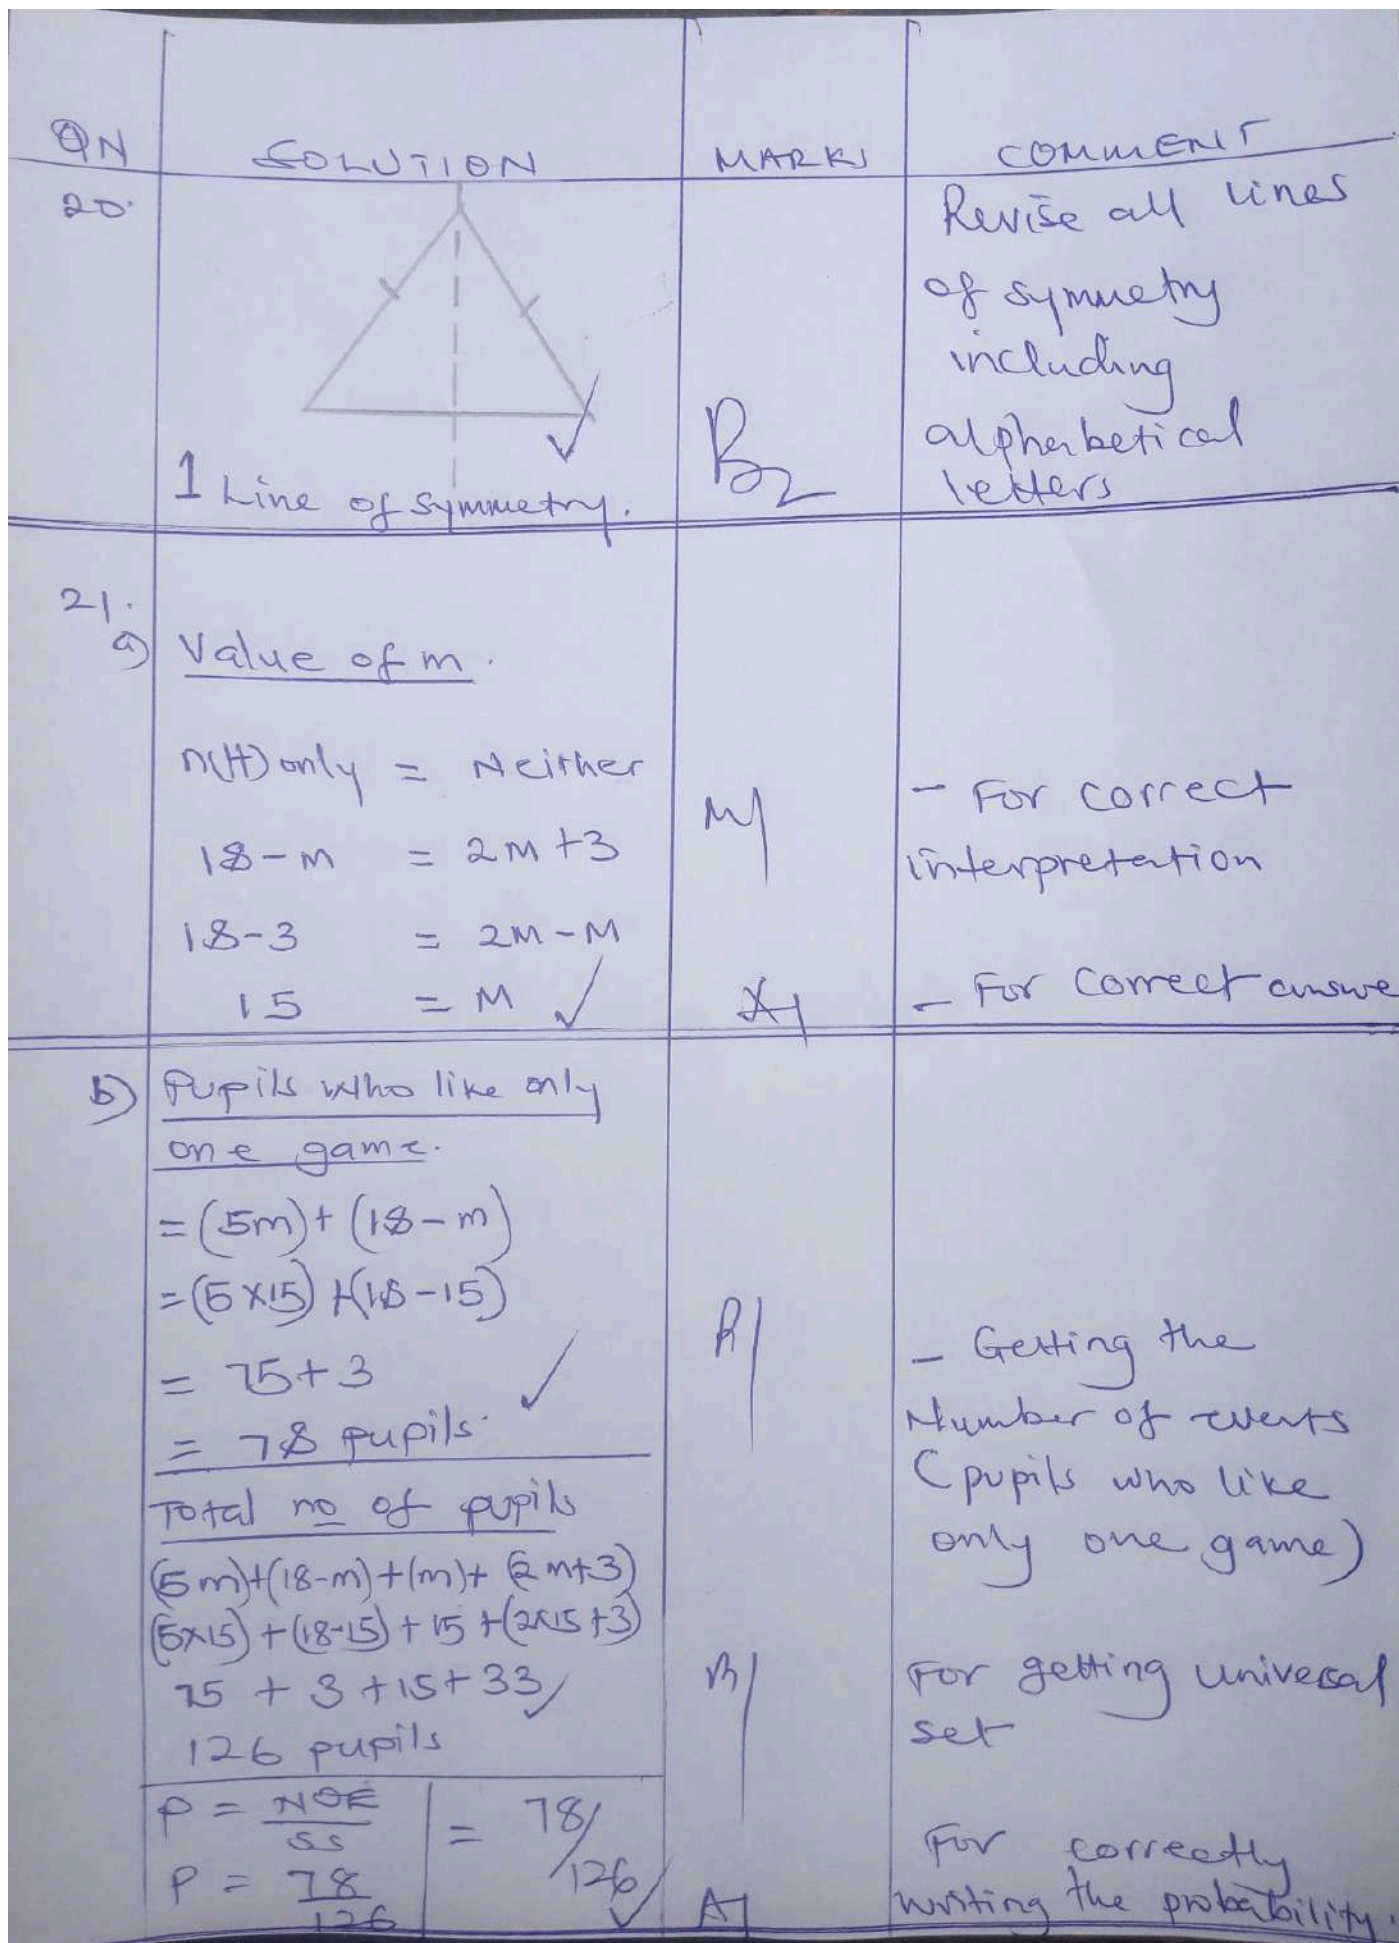 QN SOLUTION MARKS COMMENT
20.
1 Line of symmetry.
B2
Revise all lines
of symmetry
including
alphabetical
letters
21.
a) Value of m.
n(H) only = Neither
18-m = 2m+3
18-3 = 2M-M
15 = M ✓
M1
A1
- For correct
interpretation
- For correct answe
b) Pupils who like only
one game.
=(5m)+(18-m)
=(5×15)+(18-15)
= 75+3
= 78 pupils. ✓
Total no of pupils
(5m)+(18-m)+(m)+(2m+3)
(5×15)+(18-15)+15+(2×15+3)
75 + 3 +15+ 33 ✓
126 pupils
P = NOE/SS
P = 78/126
= 78/126 ✓
B1
B1
A1
- Getting the
Number of events
(pupils who like
only one game)
For getting universal
set
For correctly
writing the probability.